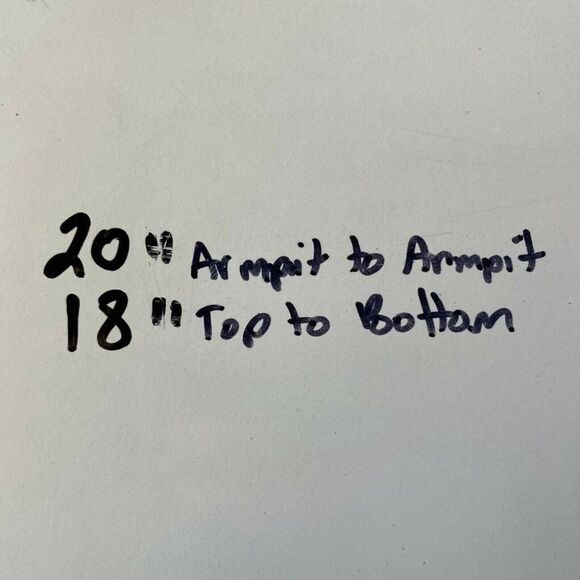 20" Armpit to Armpit
18" Top to Bottom